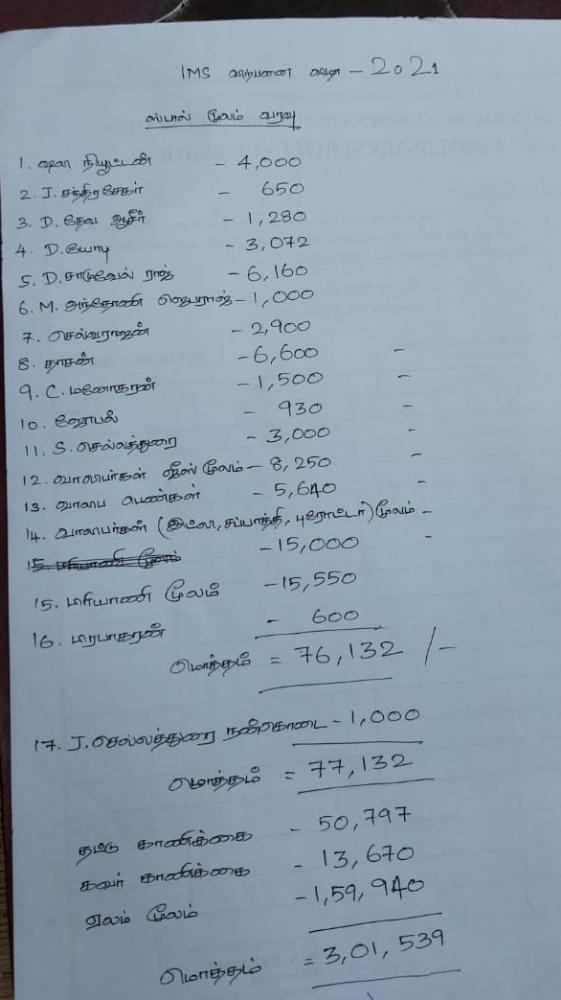 IMS விற்பனை விழா - 2021
ஸ்டால் மூலம் வரவு
1. ஷபா நியூட்டன் - 4,000
2. J. சந்திரசேகர் - 650
3. D. தேவ ஆசீர் - 1,280
4. D. யோபு - 3,072
5. D. சாமுவேல் ராஜ் - 6,160
6. M. அந்தோணி ஜெபராஜ் - 1,000
7. செல்வராஜன் - 2,900
8. தாசன் - 6,600 -
9. C. மனோகரன் - 1,500 -
10. ஜோபல் - 930 -
11. S. செல்லத்துரை - 3,000 -
12. வாலிபர்கள் ஜீஸ் மூலம் - 8,250 -
13. வாலிப பெண்கள் - 5,640 -
14. வாலிபர்கள் (இட்லி, சப்பாத்தி, புரோட்டா) மூலம் -
- 15,000 -
15. பிரியாணி மூலம் - 15,550
16. பிரபாகரன் - 600
மொத்தம் = 76,132 /-
17. J. செல்லத்துரை நன்கொடை - 1,000
மொத்தம் = 77,132
தட்டு காணிக்கை - 50,797
கவர் காணிக்கை - 13,670
ஏலம் மூலம் - 1,59,940
மொத்தம் = 3,01,539